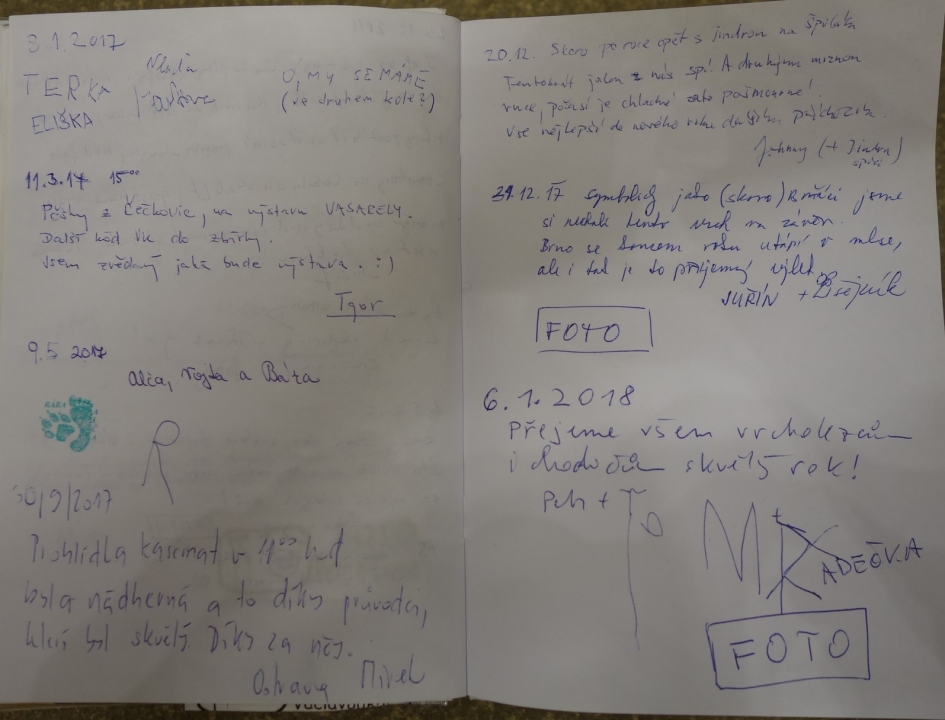 3.1.2017
TERKA
ELIŠKA
O, MY SE MÁME
(ve druhém kole?)
11.3.17 15⁰⁰
Pěšky z Čechovic, na výstavu VASARELY.
Další kód VK do zbírky.
Jsem zvědavý jaká bude výstava. :)
Igor
9.5 2017
Alča, Vojta a Bára
30/9/2017
Prohlídka kasemat v 11⁰⁰ hod
byla nádherná a to díky průvodci,
který byl skvělý. Díky za něj.
Ostrava Mirek
20.12. Skoro po roce opět s Jindrou na Špilasu
Tentokrát jeden z nás spí! A druhému mrznou
ruce, počasí je chladné zato pošmourné!
Vše nejlepší do nového roku dalším příchozím.
Johnny (+ Jindra)
spící
31.12.17 symbolicky jako (skoro) Brňáci jsme
si nechali tento vrch na závěr.
Brno se koncem roku utápí v mlze,
ale i tak je to příjemný výlet.
JUŘÍN +
FOTO
6.1.2018
Přejeme všem vrcholezcům
i chodcům skvělý rok!
Petr +
MK
ADEČKA
FOTO